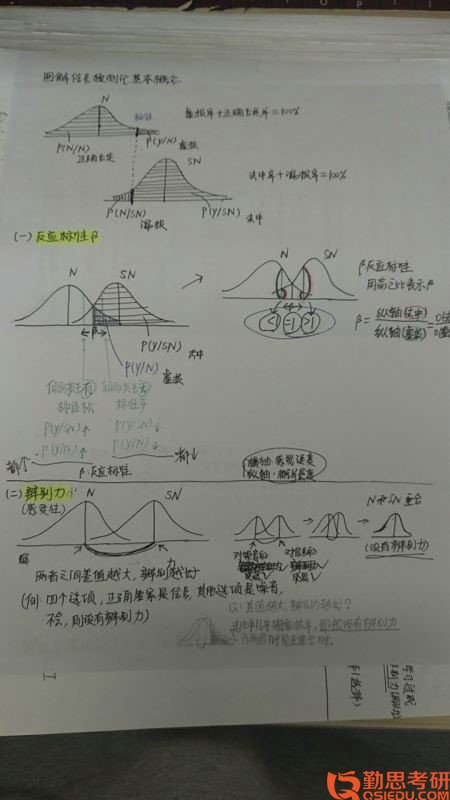 图解信号检测论基本概念.
N
标准
虚报率+正确否定率=100%
P(N/N)
正确否定
P(Y/N)
虚报
SN
击中率+漏报率=100%
P(N/SN)
漏报
P(Y/SN)
击中
(一) 反应标准β
N SN
N SN
β反应标准
用高之比表示β
<1 =1 >1
β = 纵轴(击中)
纵轴(虚报)
β
P(Y/SN) 击中
P(Y/N) 虚报
标准松
标准严
P(Y/SN)↑ P(Y/SN)↓
P(Y/N)↑ P(Y/N)↓
都↑ 都↓
β:反应标准
横轴:感觉强度
(二) 辨别力d'
(感受性)
N SN
N和SN重合
(没有辨别力)
两者之间差值越大, 辨别力越好
(例: 四个选项, 正确答案是信号, 其他选项是噪音,
不会, 则没有辨别力)
Q: 差值越大, 辨别力越好?
勤思考研
QSIEDU.COM